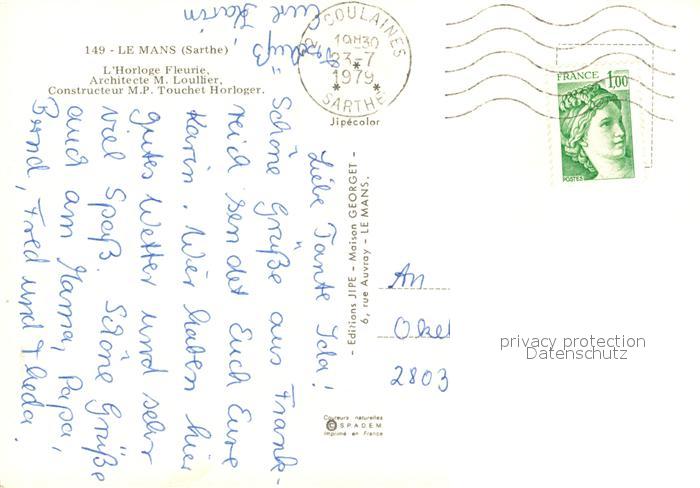 149 - LE MANS (Sarthe)
L'Horloge Fleurie,
Architecte M. Loullier,
Constructeur M.P. Touchet Horloger.
COULAINES
19H30
23-7
1979
SARTHE
Jipécolor
FRANCE 1,00
POSTES
Liebe Tante Ida!
Schöne Grüße aus Frank-
reich sendet Euch Eure
Karin. Wir haben hier
gutes Wetter und sehr
viel Spaß. Schöne Grüße
auch am Mama, Papa,
Bernd, Fred und Theda.
Eure Karin
- Editions JIPE - Maison GEORGET -
6, rue Auvray - LE MANS.
An
2803
privacy protection
Datenschutz
Couleurs naturelles
© S.P.A.D.E.M.
Imprimé en France